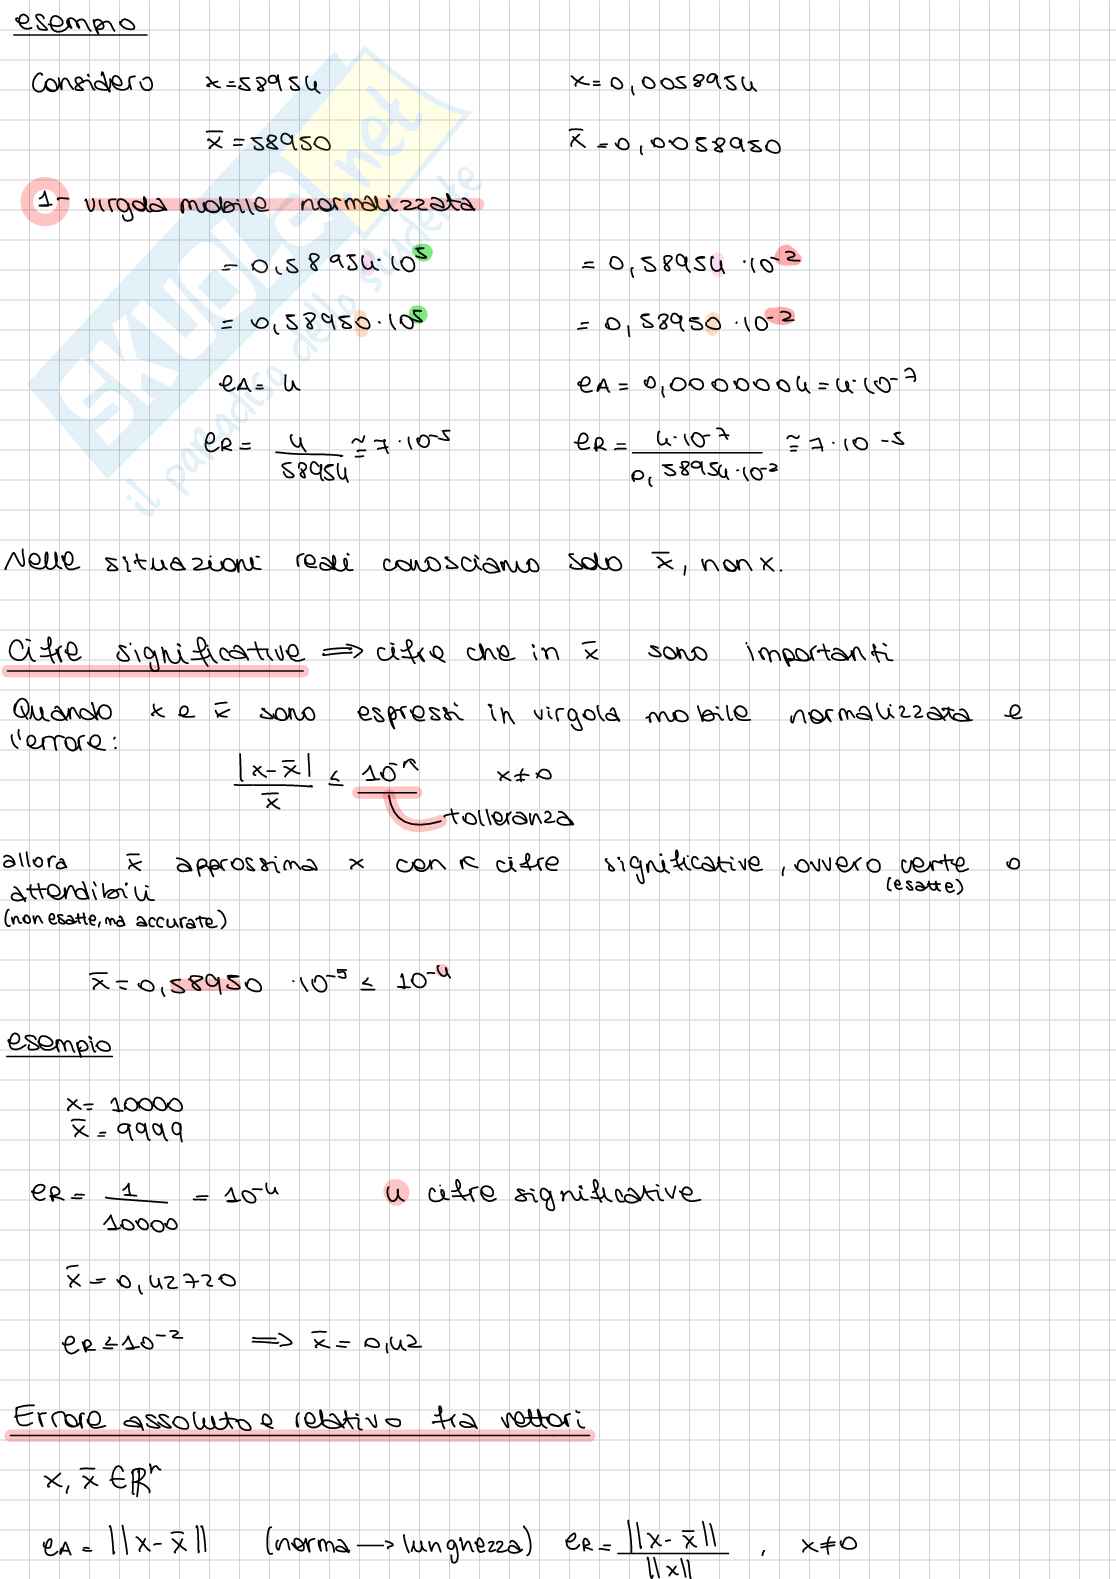 esempio
Considero x=58954 x=0,0058954
x̄=58950 x̄=0,0058950
1- virgola mobile normalizzata
= 0,58954·10⁵ = 0,58954·10⁻²
= 0,58950·10⁵ = 0,58950·10⁻²
eA= 4 eA= 0,0000004=4·10⁻⁷
eR= 4/58954 ≅ 7·10⁻⁵ eR= 4·10⁻⁷/0,58954·10⁻² ≅ 7·10⁻⁵
Nelle situazioni reali conosciamo solo x̄, non x.
Cifre significative ⟹ cifre che in x̄ sono importanti
Quando x e x̄ sono espressi in virgola mobile normalizzata e
l'errore:
|x-x̄|/x̄ ≤ 10⁻ᴷ x≠0
tolleranza
allora x̄ approssima x con K cifre significative, ovvero certe o
(esatte)
attendibili
(non esatte, ma accurate)
x̄=0,58950 ·10⁻⁵ ≤ 10⁻⁴
esempio
x= 10000
x̄= 9999
eR= 1/10000 = 10⁻⁴ 4 cifre significative
x̄=0,42720
eR≤10⁻² ⟹ x̄= 0,42
Errore assoluto e relativo fra vettori
x, x̄ ∈ℝⁿ
eA = ||x-x̄|| (norma → lunghezza) eR= ||x-x̄||/||x|| , x≠0
SKUOLA.net
il paradiso dello studente